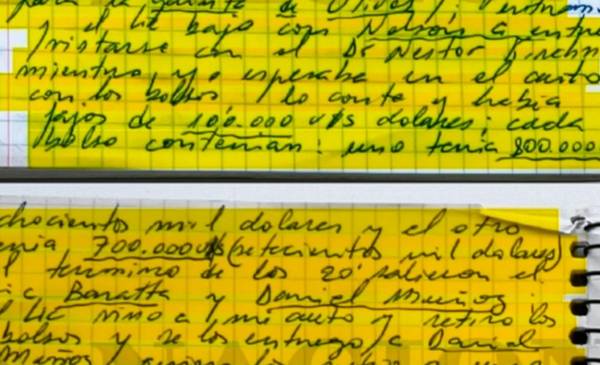 para la quinta de Olivos).
y el Lic bajo con Nelson a entre
/vistarse con el Dr Nestor Kirchn
mientras yo esperaba en el auto
con los bolsos /lo conte y habia
fajos de 100.000 u$s dolares; cada
bolso contenian: uno tenia 800.000
chocientos mil dolares y el otro
enia 700.000u$s (setecientos mil dolares)
l termino de los 20' salieron el
ic Baratta y Daniel Muñoz
l Lic vino a mi auto y retiro los
bolsos y se los entrego /a Daniel
Muñoz